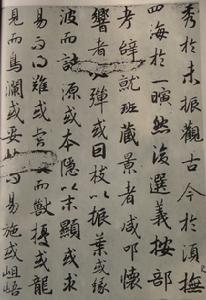 秀於未振觀古今於須撫
四海於一瞬然後選義按部
考辭就班藏景者咸叩懷
響者必彈或因枝以振葉或緣
波而討源或本隱以末顯或求
易而得難或而獸擾或龍
見而鳥瀾或妥而易施或岨峿